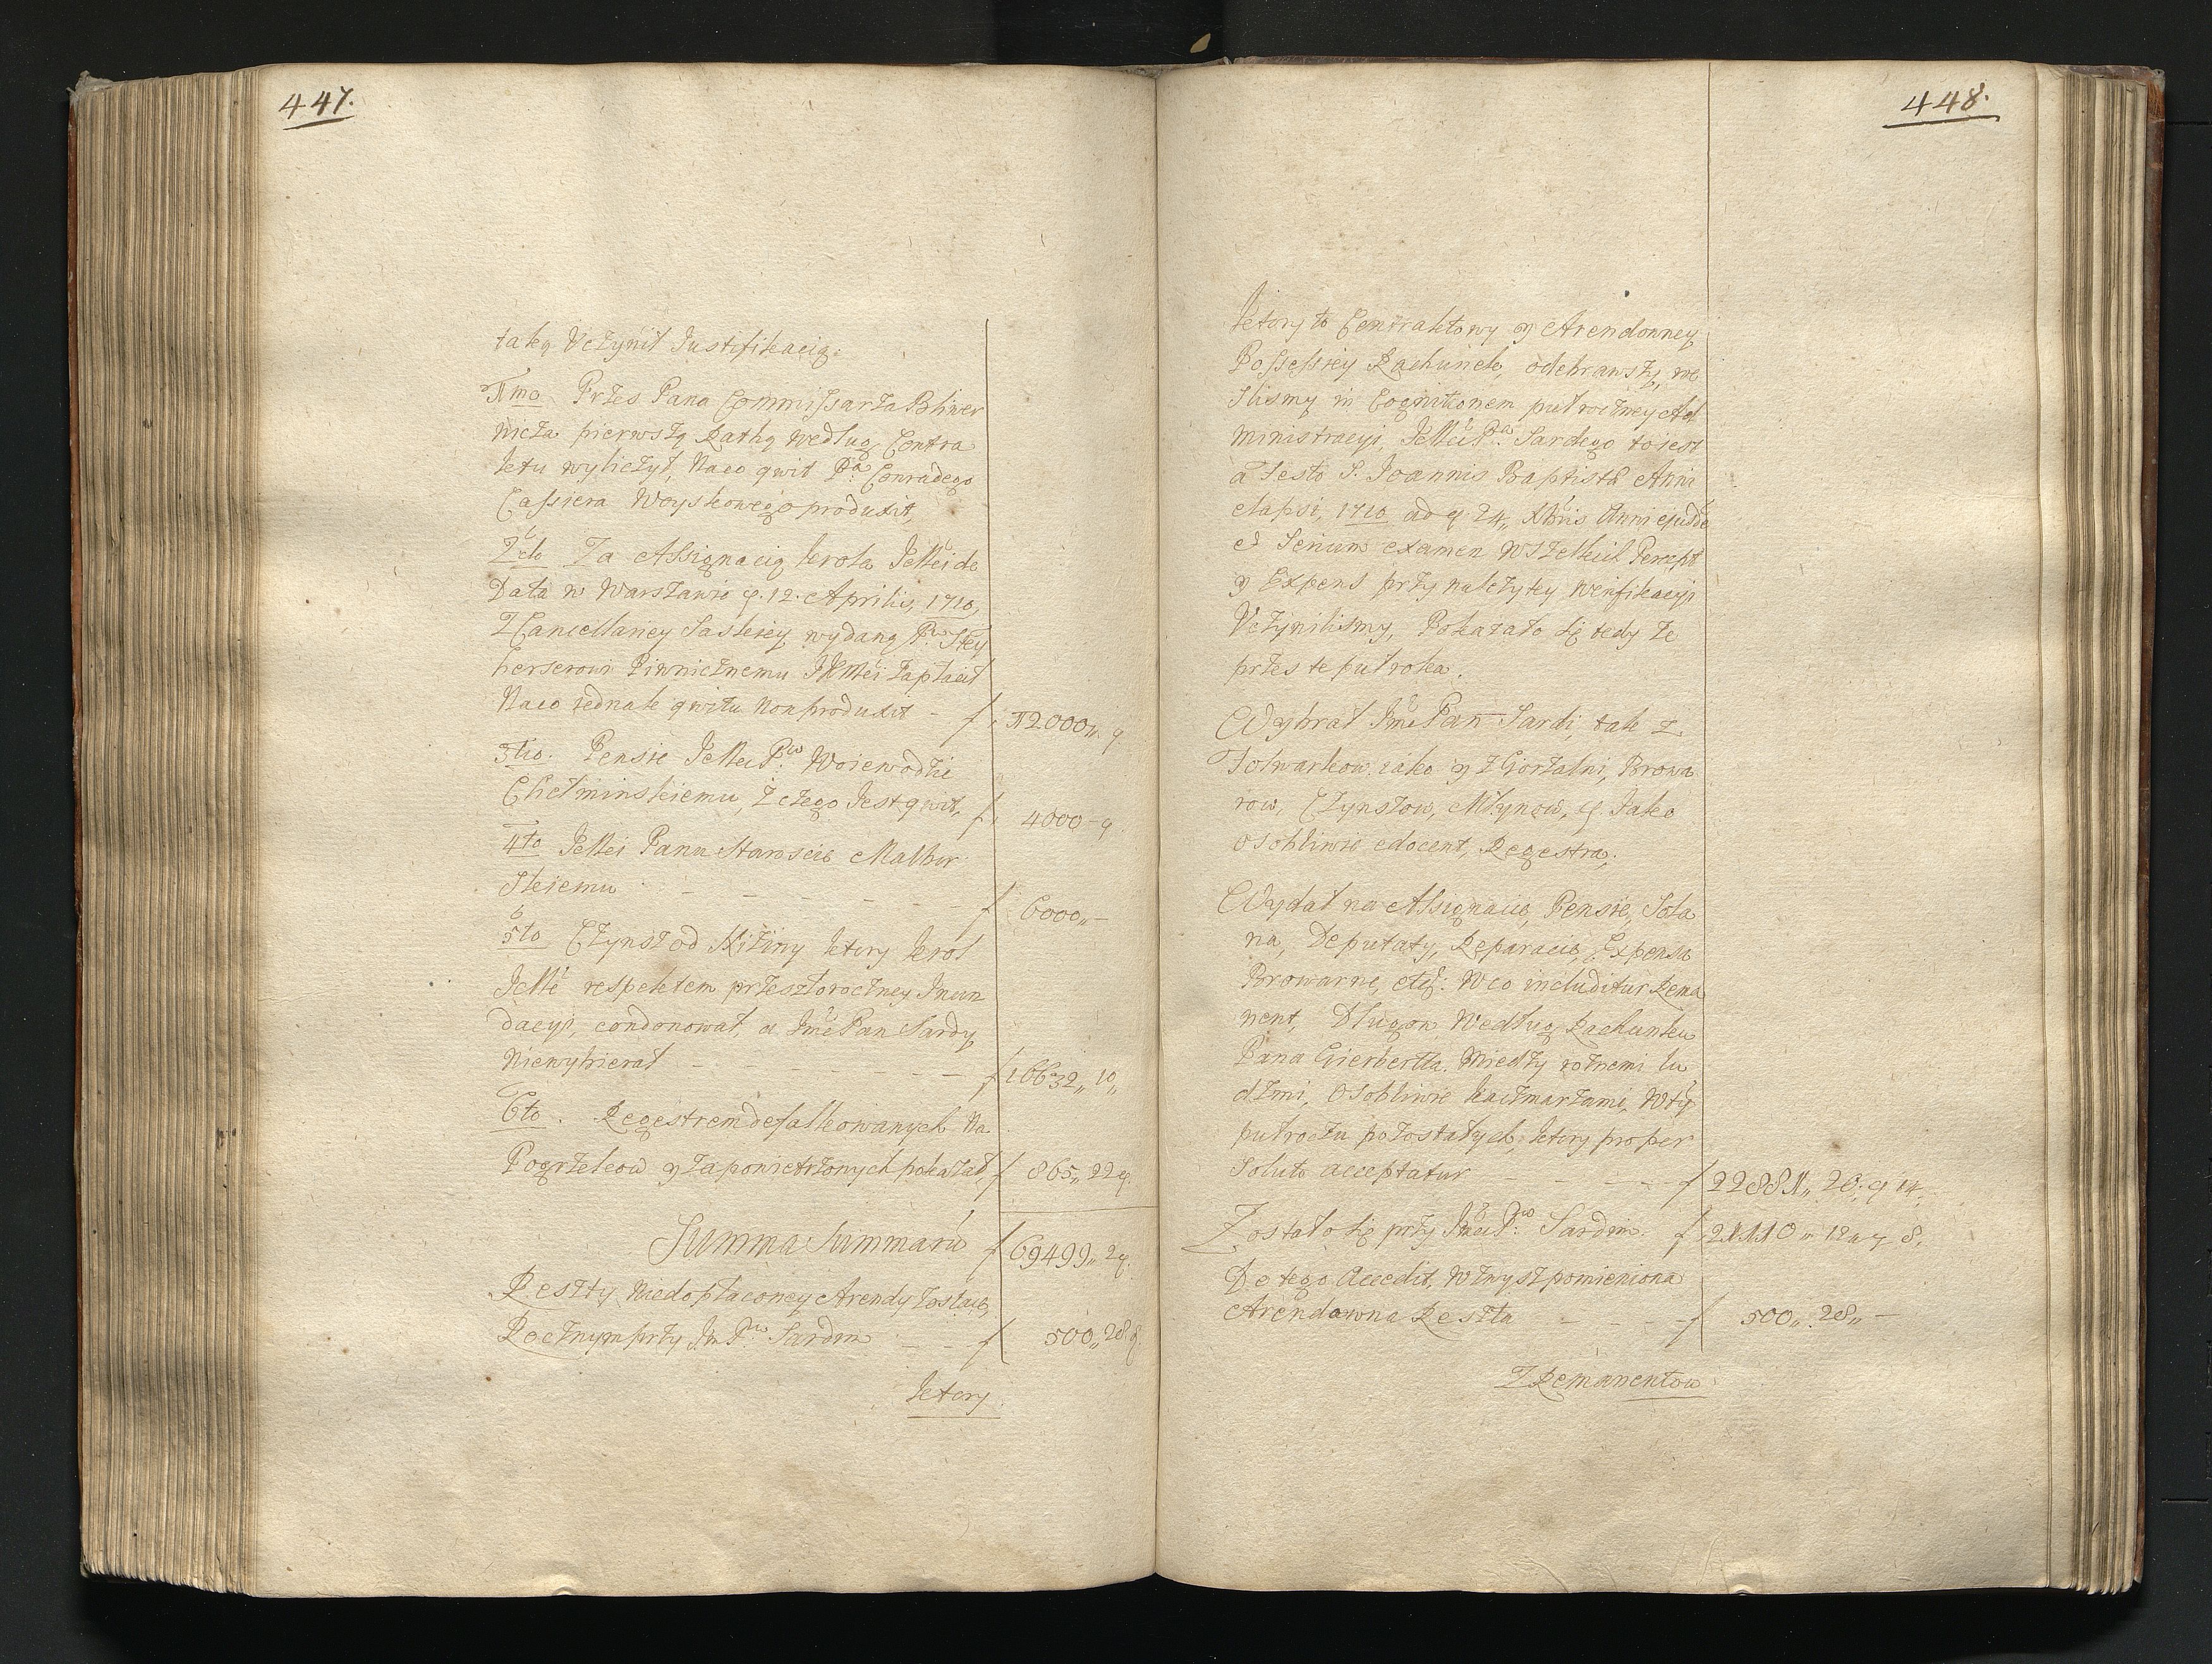 447.
taką Uczynił Justifikacią.
1mo Przes Pana Commissarza Bliwer
nicza pierwszą Rathą według Contra
ktu wyliczył, Naco qwit Pa. Conradego
Cassiera Woyskowego produxit,
2do Za Assignacią krola JeMci de
Data w Warszawie d. 12. Aprilis, 1710,
Z Cancellariey Saskiey wydaną
Piwnicznemu JKMci Zapłacił
Naco jednak qwitu non produxit - f. 12000,, g
3tio. Pensie JeMci Pu Woiewodzie
Chełminskiemu, Z czego Jest qwit, f. 4000 - g.
4to JeMci Panu Staroscie Malbor
skiemu - - - - - - f 6000,, -
5to Czynsz od Niziny ktory krol
JeMć respektem przeszłoroczney Inun
dacyi, condonował, a Jmć Pan Sardy
Niewybierał - - - - - - f 16632,, 10,,
6to. Regestrem defalkowanych Na
Pogrzelcow y zapowietrzonych pokazał, f 865,, 22 g.
Summa Summarū f 69499,, 2 g.
Reszty Niedopłaconey Arendy Zostaie,
Rocznym przy Jm Pu Sardim - - f 500,, 28 g.
ktory
448.
ktory to Contraktowy y Arendowney
Possessiey Rachunek, odebrawszy, we
slismy in Cognitionem pułroczney Ad
ministracyi, JeMci Pa. Sardego to jest
a Festo S. Joannis Baptistæ Anni
elapsi, 1710 ad d. 24,, Xbris Anni ejusdē
et Serium examen Wszelkich Percept
y Expens przy należytey Werifikacyi
Uczynilismy, Pokazało się tedy że
przes te puł roka.
Wybrał Jmć Pan Sardi, tak z
Folwarkow, iako y z Gorzalni, Browa
row, Czynszow, Młynow, d. Jako
osobliwie edocent, Regestra;
Wydał na Assignacie, Pensie, Sola
na, Deputaty, Reparacie, Expensa
Browarne, etc: W co includitur Rema
nent, Długow Według Rachunku
Pana Gierbertta. Miedzy rożnemi lu
dzmi, Osobliwie karczmarzami, W tÿ
pułroczu pozostałych, ktory pro per
soluto acceptatur - - - - f 22881,, 26,, g 14.
Zostało się przy JmciPu Sardim. f 21110,, 12,, g 8.
Do tego Accedit, Wzwysz pomieniona
Arendowna Reszta - - - - f 500,, 28,, -
Z Remanentow